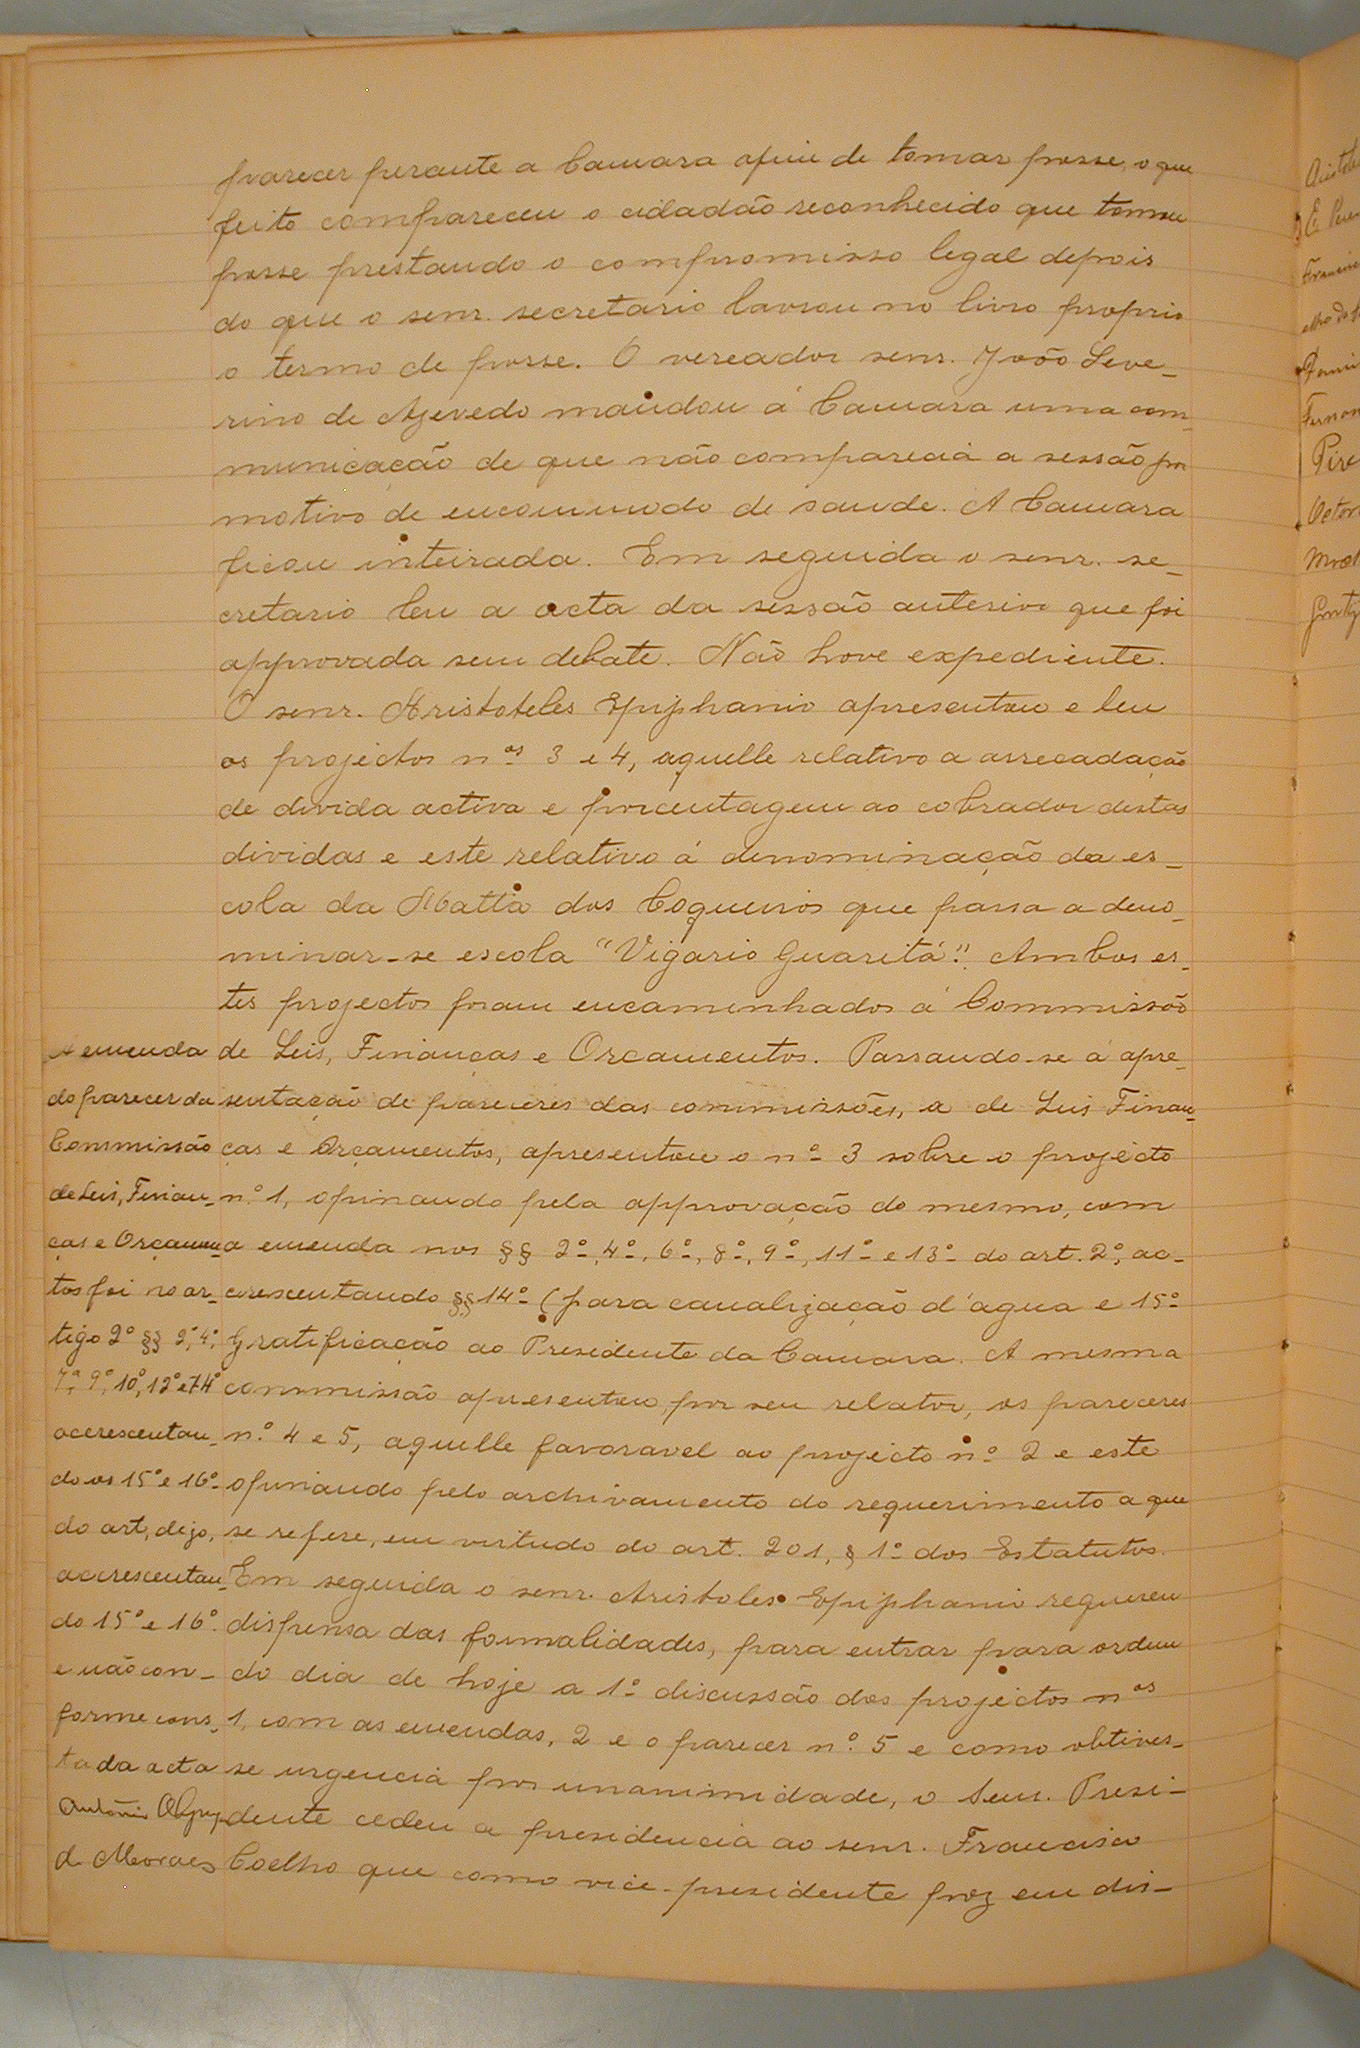 parecer perante a Camara afim de tomar posse, o que
feito compareceu o cidadão reconhecido que tomou
posse prestando o compromisso legal depois
do que o senr. secretario lavrou no livro proprio
o termo de posse. O vereador senr. João Seve-
rino de Azevedo mandou á Camara uma com-
municação de que não comparecia a sessão por
motivo de encommodo de saude. A Camara
ficou inteirada. Em seguida o senr. se-
cretario leu a acta da sessão anterior que foi
approvada sem debate. Não hove expediente.
O senr. Aristoteles Epiphanio apresentou e leu
os projectos nos 3 e 4, aquelle relativo a arrecadação
de divida activa e porcentagem ao cobrador destas
dividas e este relativo á denominação da es-
cola da Matta dos Coqueiros que passa a deno-
minar-se escola "Vigario Guaritá". Ambos es-
tes projectos foram encaminhados á Commissão
de Leis, Finanças e Orcamentos. Passando-se á apre-
sentação de pareceres das commissões, a de Leis Finan-
ças e Orçamentos, apresentou o nº 3 sobre o projecto
n.º 1, opinando pela approvação do mesmo, com
a emenda nos §§ 2º, 4º, 6º, 8º, 9º, 11º e 13º do art. 2º, ac-
crescentando §§ 14º (para canalização d'agua e 15º
Gratificação ao Presidente da Camara. A mesma
commissão apresentou, por seu relator, os pareceres
n.º 4 e 5, aquelle favoravel ao projecto nº 2 e este
opinando pelo archivamento do requerimento a que
se refere, em virtude do art. 201, § 1º dos Estatutos.
Em seguida o senr. Aristoles Epiphanio requereu
dispensa das formalidades, para entrar para ordem
do dia de hoje a 1º discussão dos projectos nos
1, com as emendas, 2 e o parecer n.º 5 e como obtives-
se urgencia por unanimidade, o Senr. Presi-
dente cedeu a presidencia ao senr. Francisco
Coelho que como vice-presidente poz em dis-
A emenda
do parecer da
Commissão
de Leis, Finan-
ças e Orçamen
tos foi no ar-
tigo 2º §§ 2º, 4º,
7º, 9º, 10º, 12º e 14º
accrescentan-
do os 15º e 16º
do art, digo,
accrescentan-
do 15º e 16º
e não con-
forme cons-
ta da acta
Antônio
de Moraes
E
Pire